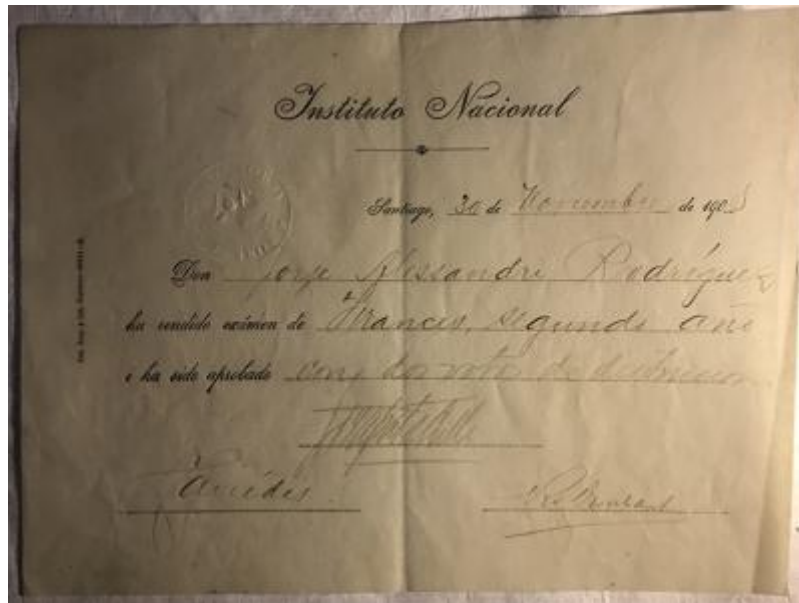 Instituto Nacional
Santiago, 30 de Noviembre de 190
Don Jorge Alessandri Rodríguez
ha rendido exámen de Frances, segundo año
e ha sido aprobado con dos votos de distincion